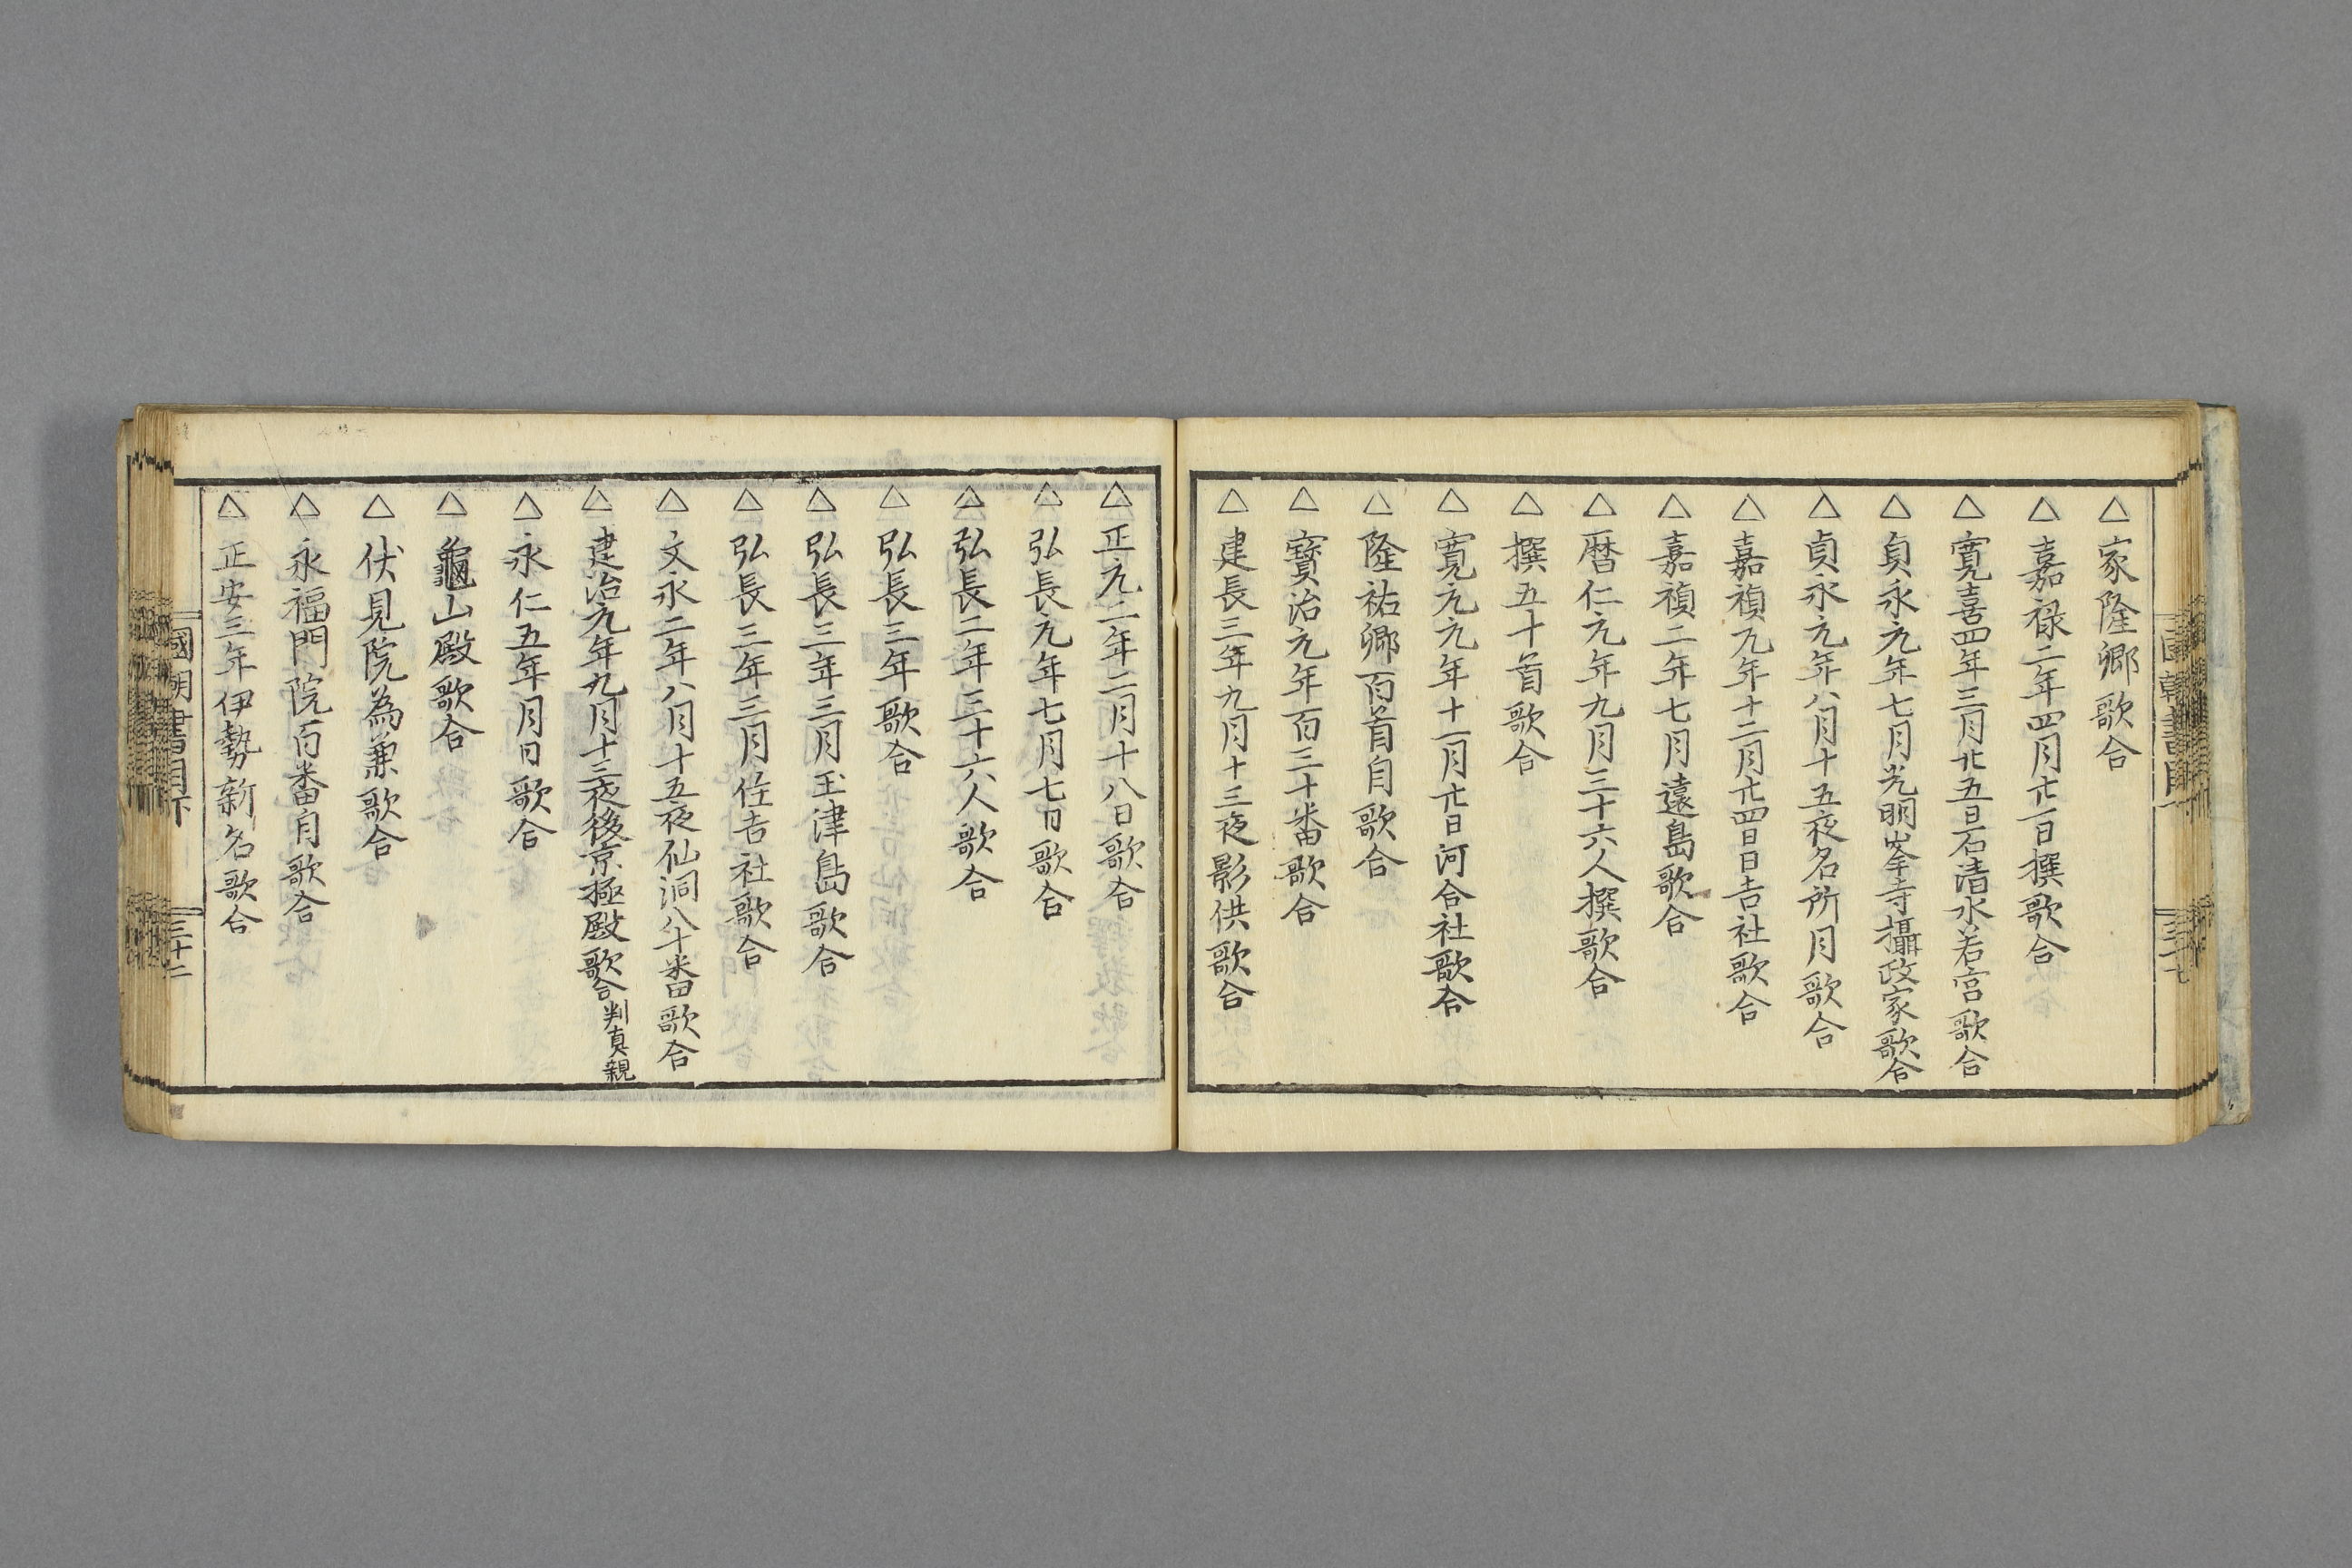 △家隆卿歌合
△嘉禄二年四月廿一日撰歌合
△寛喜四年三月廿五日石清水若宮歌合
△貞永元年七月光明峯寺攝政家歌合
△貞永元年八月十五夜名所月歌合
△嘉禎元年十二月廿四日日吉社歌合
△嘉禎二年七月遠島歌合
△暦仁元年九月三十六人撰歌合
△撰五十首歌合
△寛元元年十一月廿日河合社歌合
△隆祐卿百首自歌合
△寳治元年百三十番歌合
△建長三年九月十三夜影供歌合
△正元二年二月十八日歌合
△弘長元年七月七日歌合
△弘長二年三十六人歌合
△弘長三年歌合
△弘長三年三月玉津島歌合
△弘長三年三月住吉社歌合
△文永二年八月十五夜仙洞八十番歌合
△建治元年九月十三夜後京極殿歌合判真親
△永仁五年月日歌合
△龜山殿歌合
△伏見院為兼歌合
△永福門院百番自歌合
△正安三年伊勢新名歌合
國朝書目下
三十二